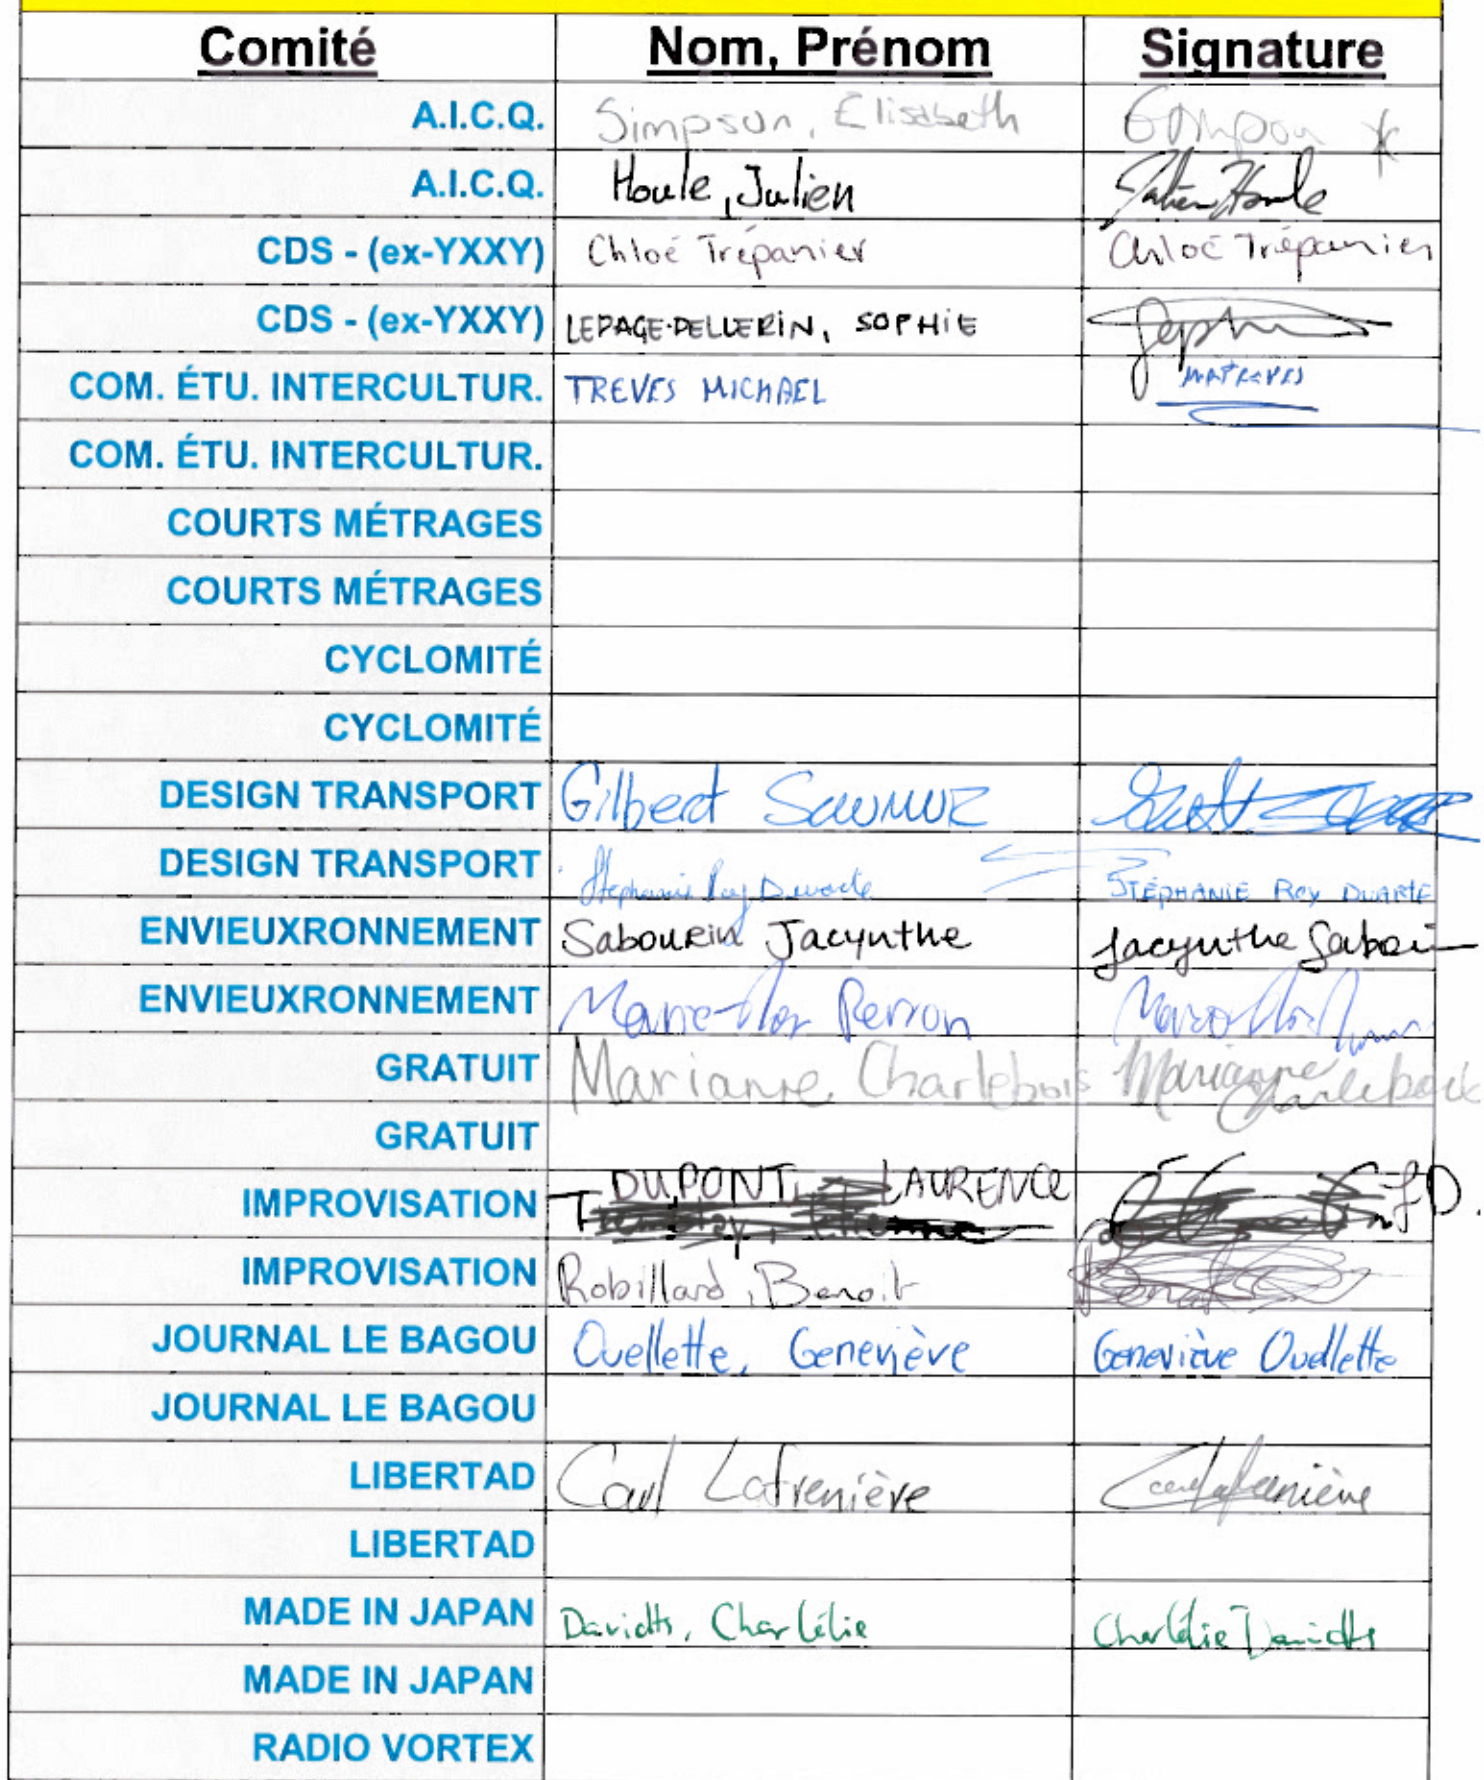 Comité Nom, Prénom Signature
A.I.C.Q. Simpson, Elisabeth
A.I.C.Q. Houle, Julien Julien Houle
CDS - (ex-YXXY) Chloé Trépanier Chloé Trépanier
CDS - (ex-YXXY) LEPAGE-PELLERIN, SOPHIE
COM. ÉTU. INTERCULTUR. TREVES MICHAEL
COM. ÉTU. INTERCULTUR.
COURTS MÉTRAGES
COURTS MÉTRAGES
CYCLOMITÉ
CYCLOMITÉ
DESIGN TRANSPORT Gilbert
DESIGN TRANSPORT Stephanie Roy Duarte STÉPHANIE Roy DUARTE
ENVIEUXRONNEMENT Sabourin Jacynthe Jacynthe
ENVIEUXRONNEMENT Perron
GRATUIT Marianne Charlebois Marianne Charlebois
GRATUIT
IMPROVISATION DUPONT, LAURENCE LD.
IMPROVISATION Robillard, Benoit
JOURNAL LE BAGOU Ouellette, Geneviève Geneviève Ouellette
JOURNAL LE BAGOU
LIBERTAD Carl Lafrenière Carl Lafrenière
LIBERTAD
MADE IN JAPAN Davidts, Charlélie Charlélie Davidts
MADE IN JAPAN
RADIO VORTEX